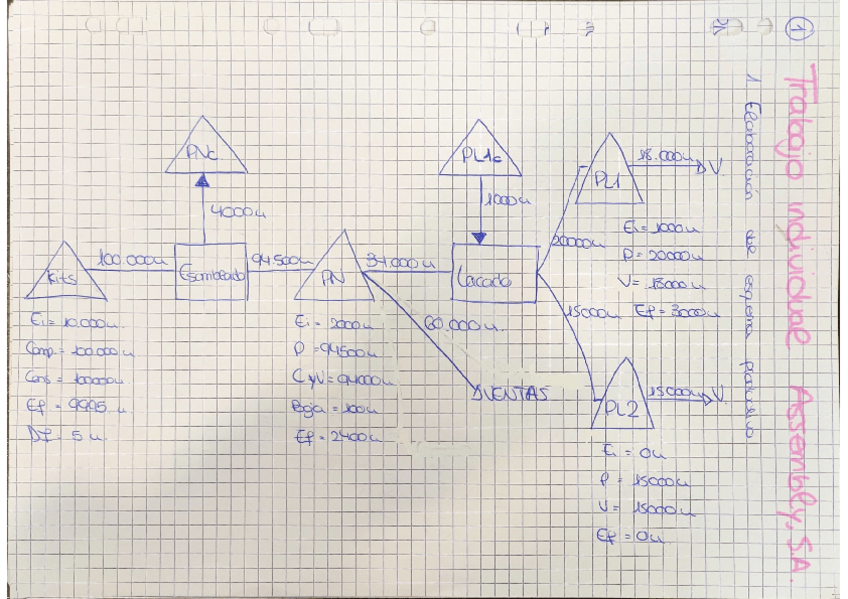 1
Trabajo individual Assembly, S.A.
1. Elaboración del esquema productivo
PNc
4000u
Kits
100.000u
Ensamblado
94500u
PN
34000u
60.000u.
VENTAS
PL1c
1000u
Lacado
20000u
15000u
PL1
18.000u
V
Ei = 1000u
P = 20000u
V = 18000u
Ef = 3000u
PL2
15000u
V
Ei = 0u
P = 15000u
V = 15000u
Ef = 0u
Ei = 10.000u.
Comp = 100.000u
Cons = 100000u
Ef = 9995 u.
DI = 5 u.
Ei = 2000u
P = 94500u
C y V = 94000u
Baja = 100u
Ef = 2400u